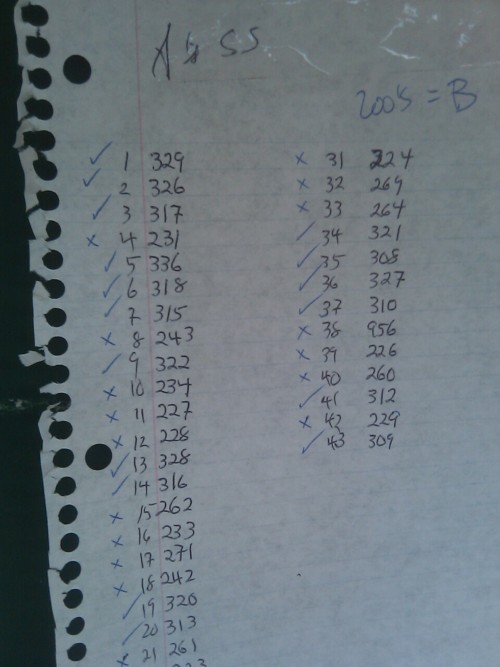 200's = B
✓ 1 329
✓ 2 326
✓ 3 317
x 4 231
✓ 5 336
✓ 6 318
✓ 7 315
x 8 243
✓ 9 322
x 10 234
x 11 227
x 12 228
✓ 13 328
✓ 14 316
x 15 262
x 16 233
x 17 271
x 18 242
✓ 19 320
✓ 20 313
x 21 261
x 31 224
x 32 269
x 33 264
✓ 34 321
✓ 35 308
✓ 36 327
✓ 37 310
x 38 956
x 39 226
x 40 260
✓ 41 312
x 42 229
✓ 43 309